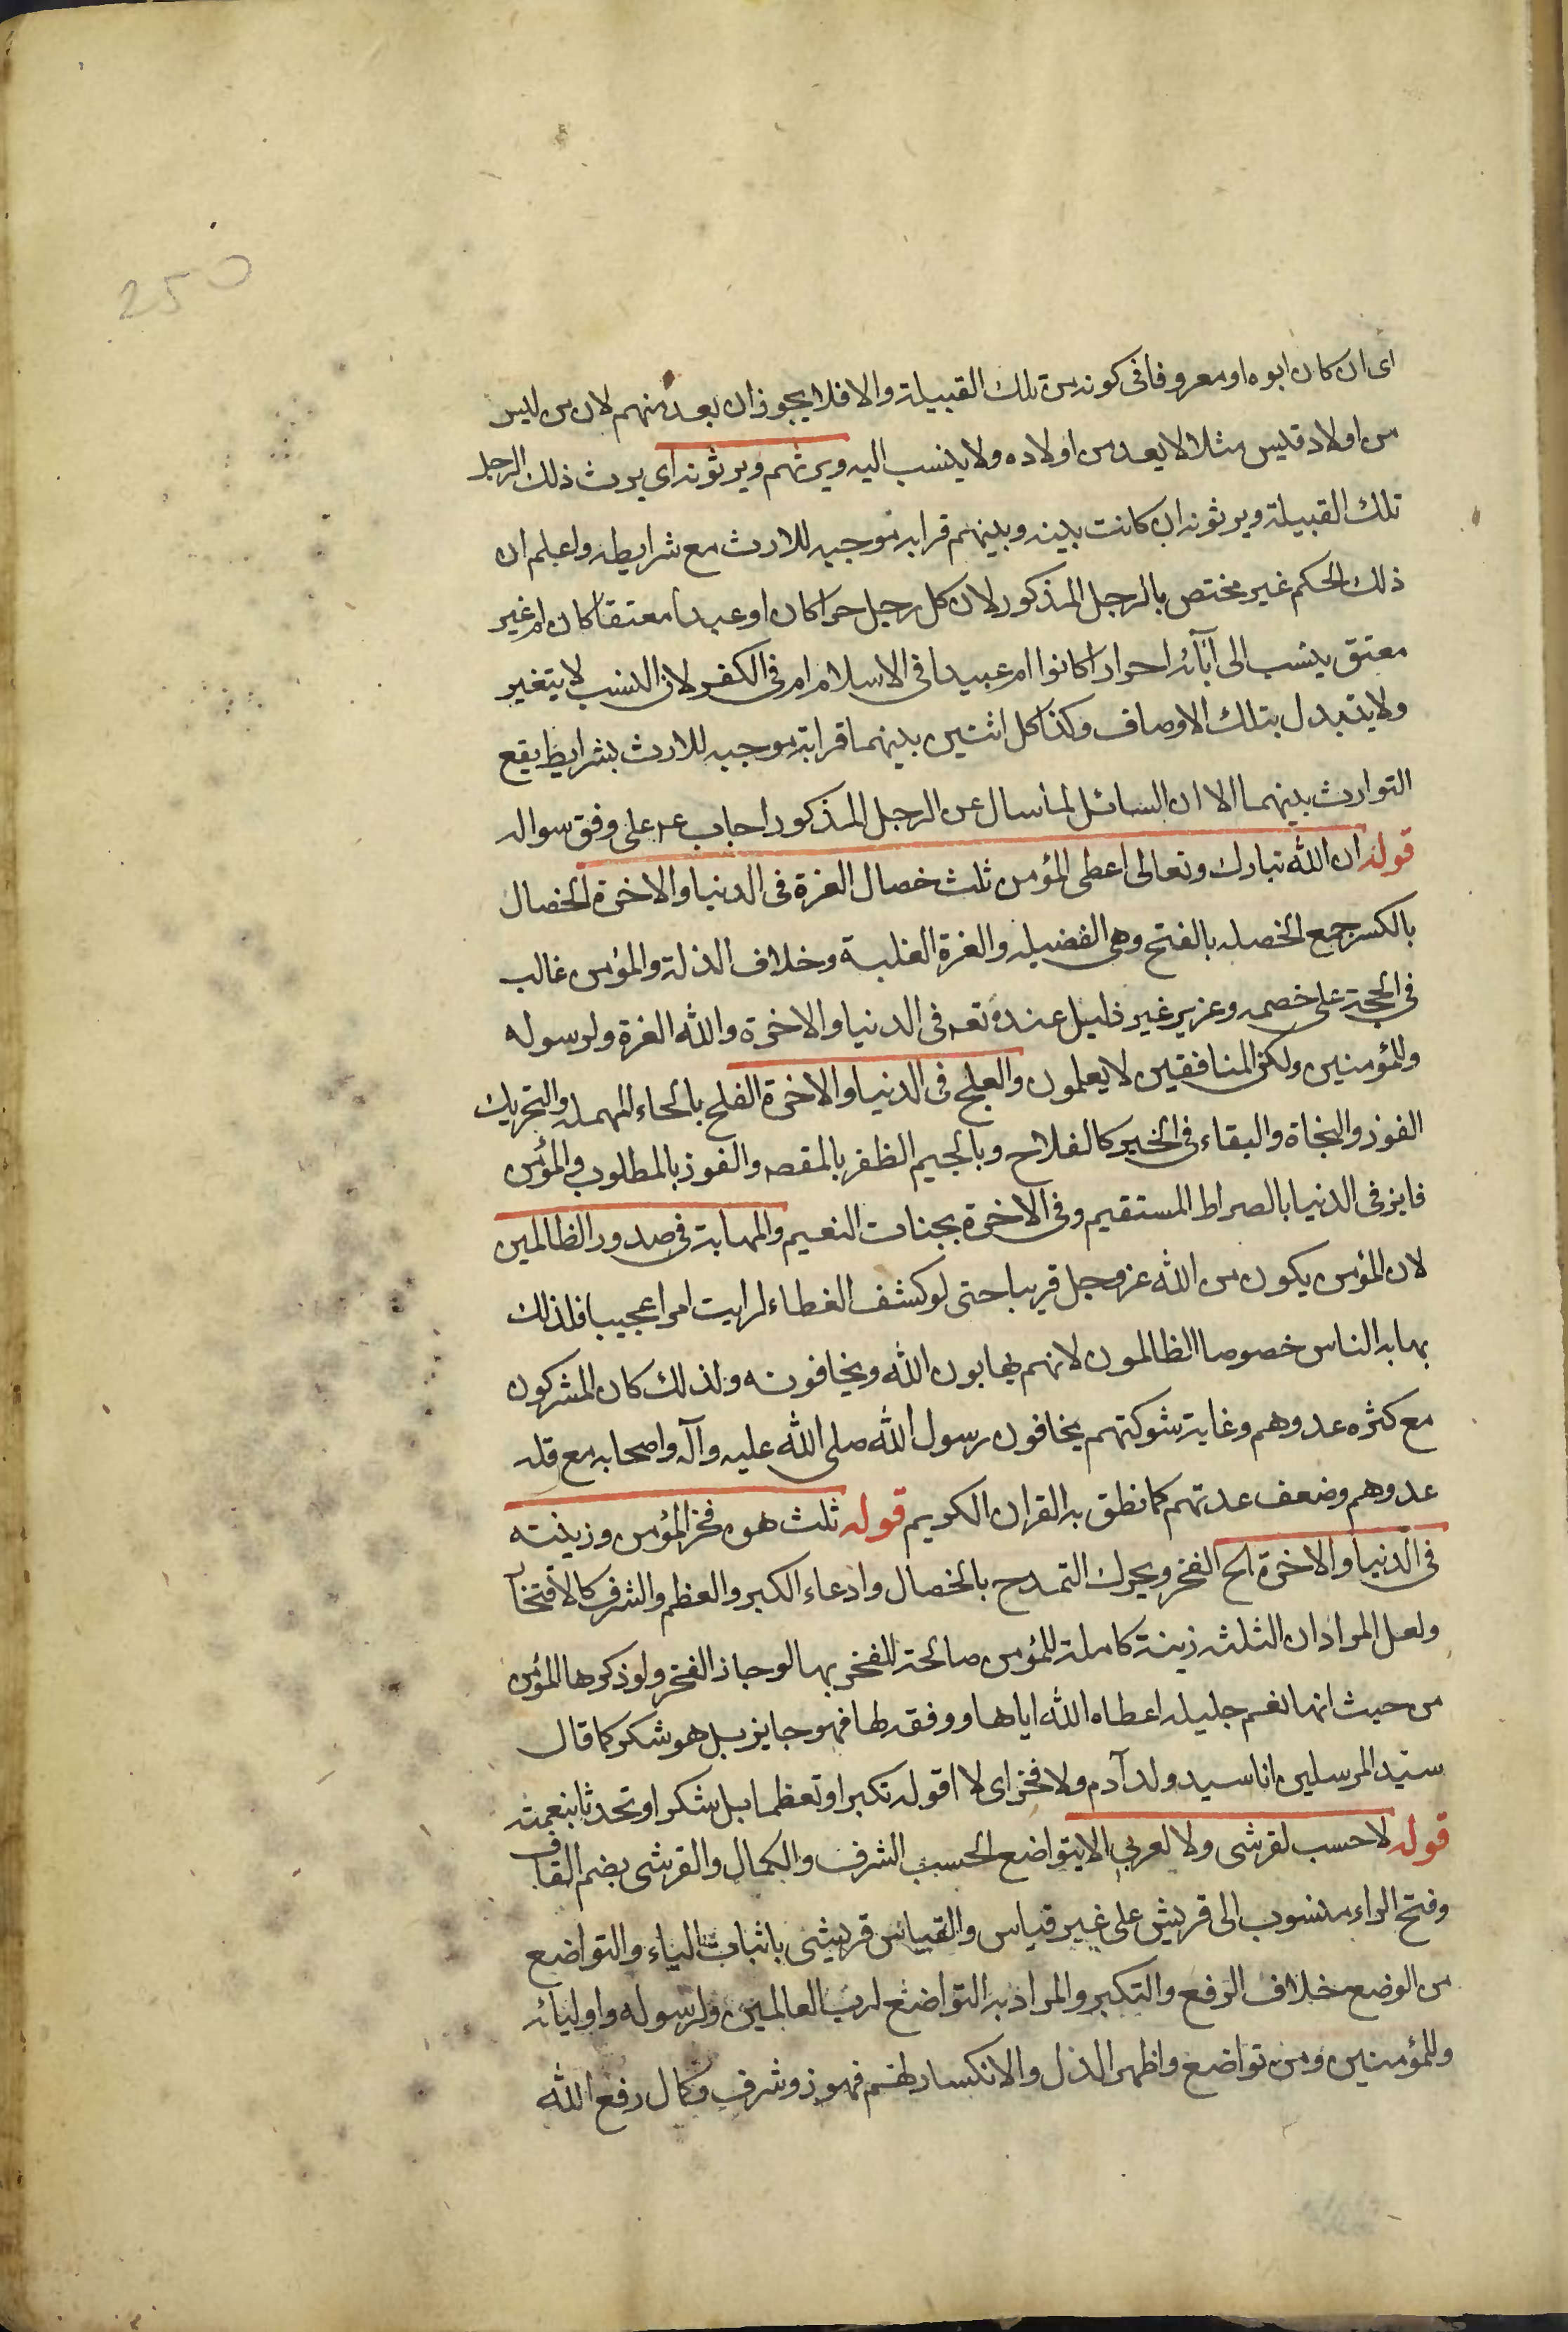 250
اى ان كان ابوه او معروفا فى كونه من تلك القبيلة والا فلا يجوز ان يعد منهم لان من ليس
من اولاد قيس مثلا لا يعد من اولاده ولا ينسب اليه ويرثهم ويرثونه اى يرث ذلك الرجل
تلك القبيلة ويرثونه ان كانت بينه وبينهم قرابه موجبه للارث مع شرايطه واعلم ان
ذلك الحكم غير مختص بالرجل المذكور لان كل رجل حرا كان او عبدا معتقا كان ام غير
معتق ينسب الى آبائه احرارا كانوا ام عبيدا فى الاسلام ام فى الكفر لان النسب لا يتغير
ولا يتبدل بتلك الاوصاف وكذا كل اثنين بينهما قرابة موجبه للارث بشرايط يقع
التوارث بينهما الا ان السائل لما سال عن الرجل المذكور اجاب عه على وفق سواله
قوله ان الله تبارك وتعالى اعطى المؤمن ثلث خصال العزة فى الدنيا والاخرة الخصال
بالكسر جمع الخصله بالفتح وهى الفضيله والعزة الغلبة وخلاف الذلة والمؤمن غالب
فى الحجة على خصمه وعزيز غير ذليل عنده تعه فى الدنيا والاخرة والله العزة ولرسوله
وللمؤمنين ولكن المنافقين لا يعلمون والفلج فى الدنيا والاخرة الفلح بالحاء المهمله والتحريك
الفوز والنجاة والبقاء فى الخير كالفلاح وبالجيم الظفر بالمقصد والفوز بالمطلوب والمؤمن
فايز فى الدنيا بالصراط المستقيم وفى الاخرة بجنات النعيم والمهابة فى صدور الظالمين
لان المؤمن يكون من الله عز وجل قريبا حتى لو كشف الغطاء لرايت امرا عجيبا فلذلك
يهابه الناس خصوصا الظالمون لانهم يهابون الله ويخافونه ولذلك كان المشركون
مع كثره عددهم وغاية شوكتهم يخافون رسول الله صلى الله عليه وآله واصحابه مع قله
عددهم وضعف عدتهم كما نطق به القران الكريم قوله ثلث هن فخر المؤمن وزينته
فى الدنيا والاخرة الح الفخر ويحرك التمدح بالخصال وادعاء الكبر والعظم والشرف كالافتخار
ولعل المراد ان الثلثه زينة كاملة للمؤمن صالحة للفخر بها لو جاز الفخر ولو ذكرها المؤمن
من حيث انها نعم جليله اعطاه الله اياها ووفقه لها فهو جايز بل هو شكر كما قال
سيد المرسلين انا سيد ولد آدم ولا فخر اى لا اقوله تكبرا وتعظما بل شكرا وتحدثا بنعمته
قوله لا حسب لقرشى ولا لعربي الا بتواضع الحسب الشرف والكمال والقرشى بضم القاف
وفتح الراء منسوب الى قريش على غير قياس والقياس قريشى باثبات الياء والتواضع
من الوضع خلاف الرفع والتكبر والمراد به التواضع لرب العالمين ولرسوله واوليائه
وللمؤمنين ومن تواضع واظهر الذل والانكسار لهم فهو ذو شرف وكمال رفع الله